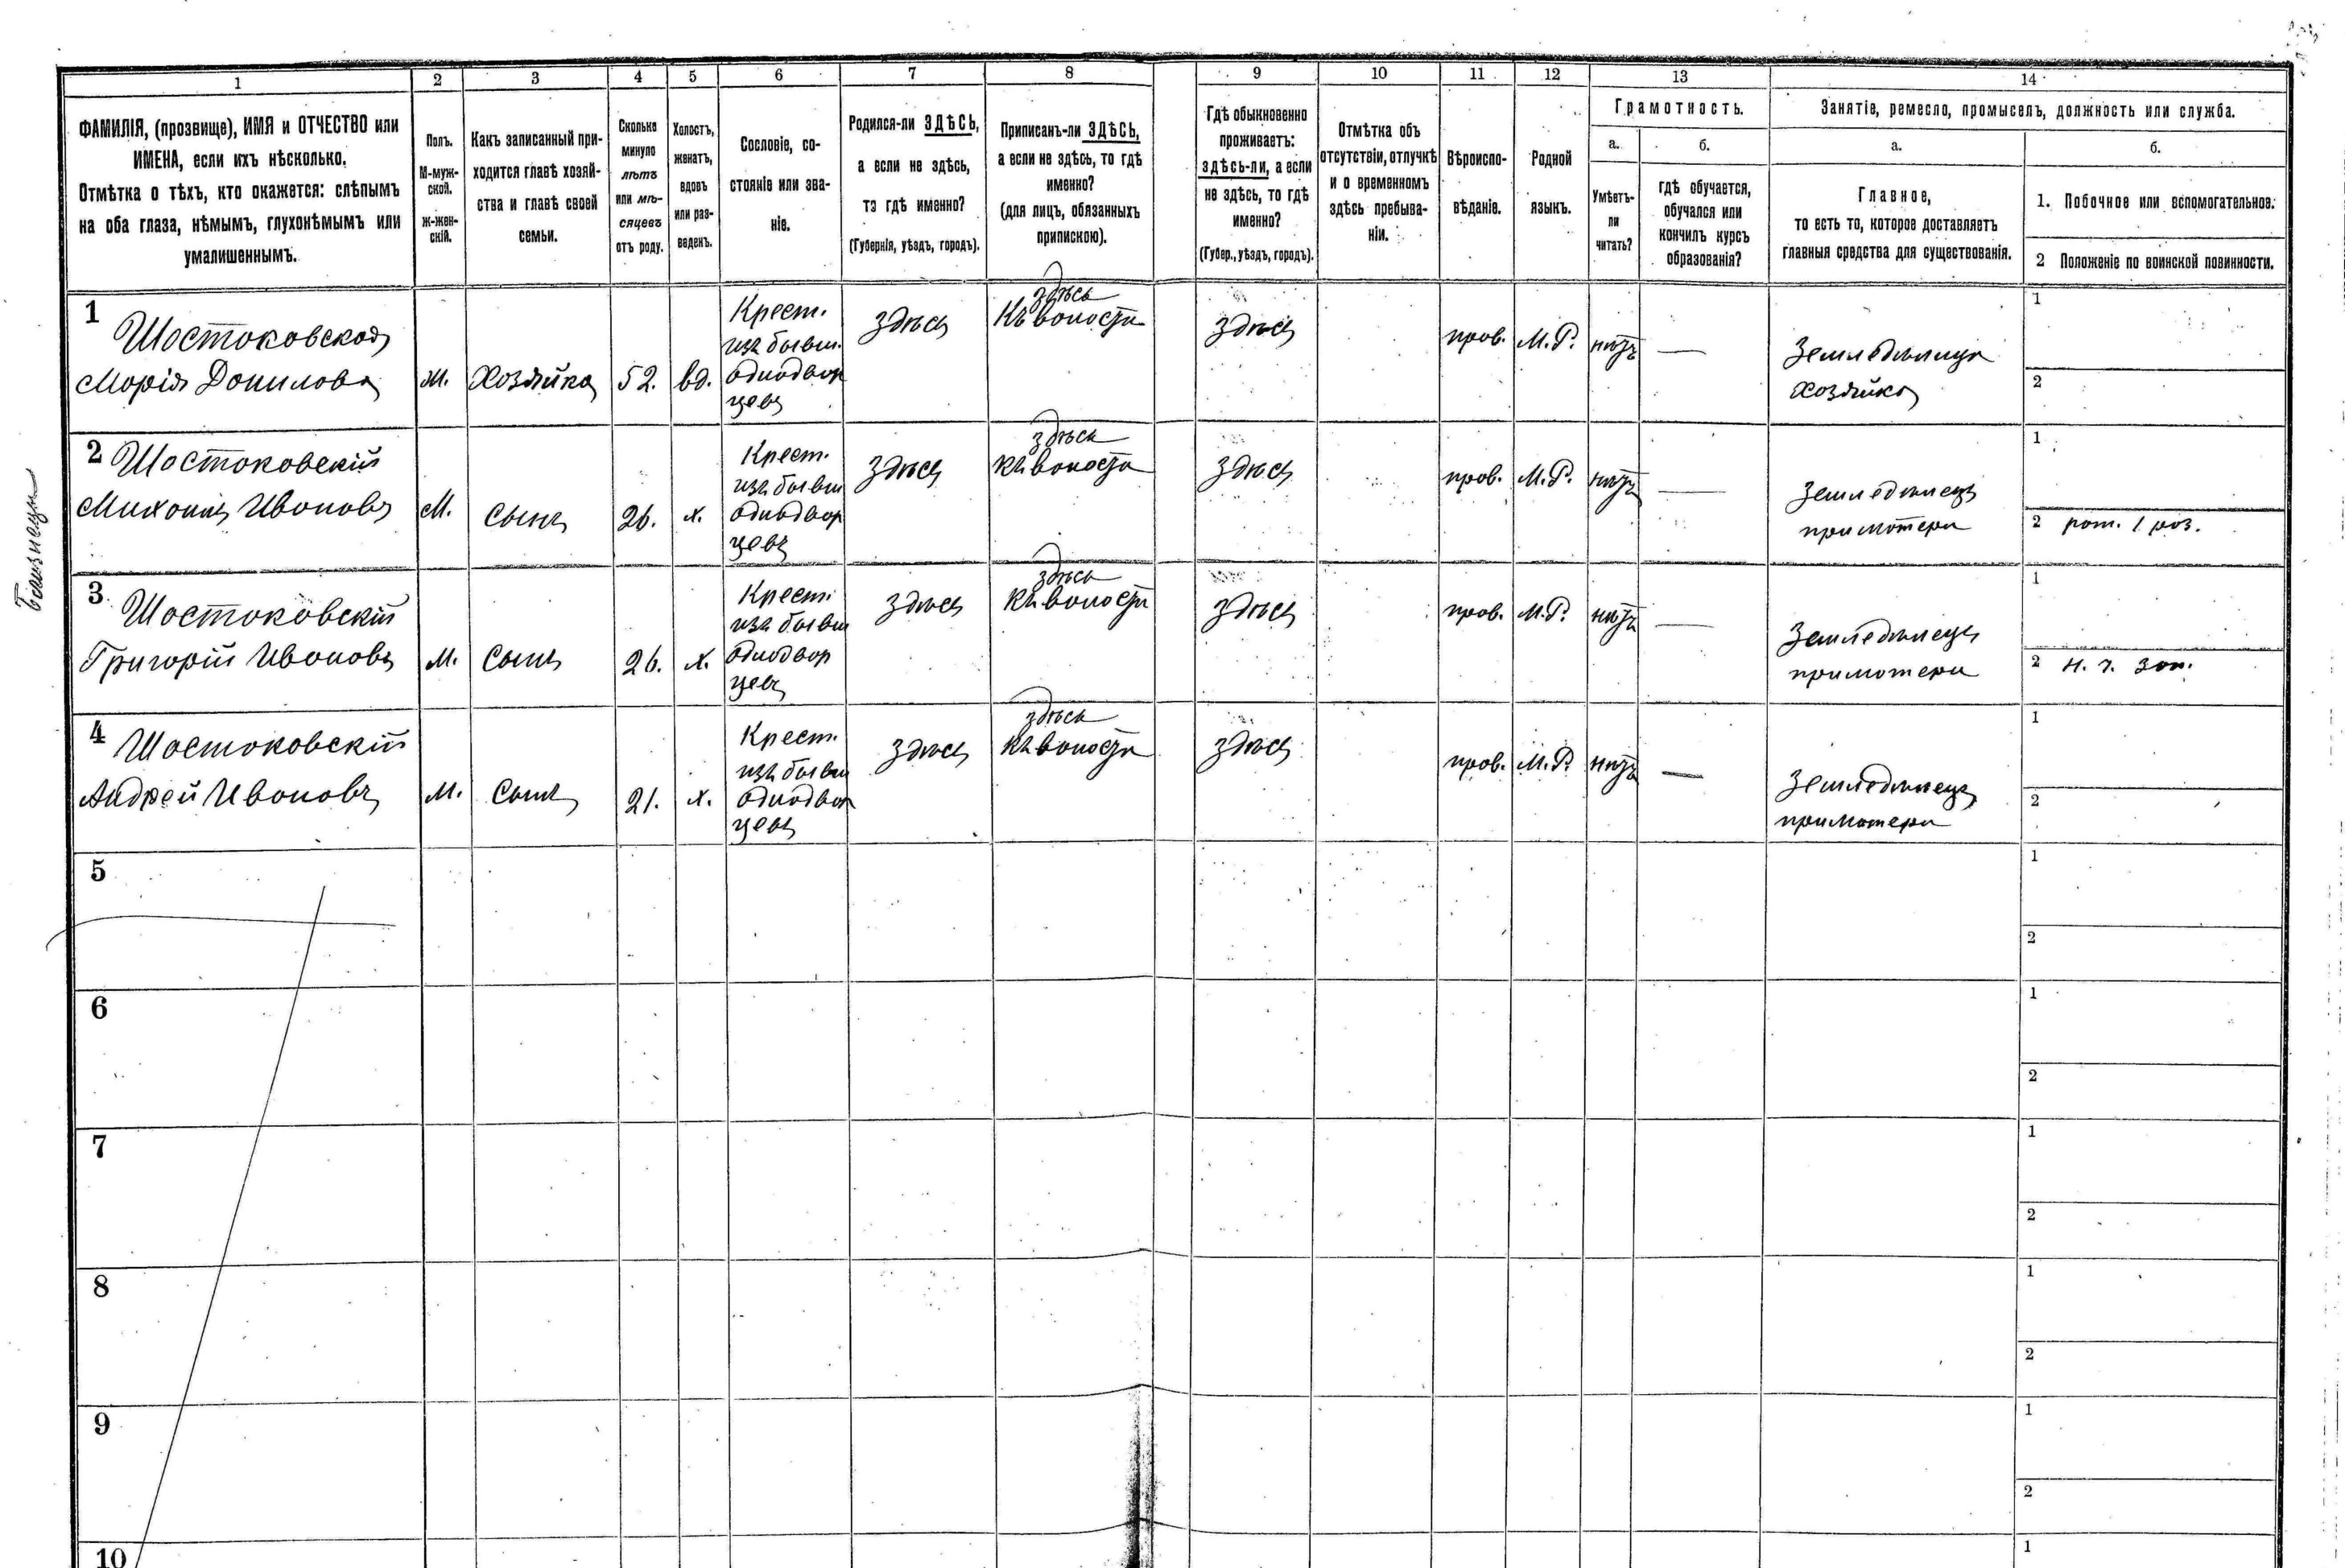 1
2
3
4
5
6
7
8
9
10
11
12
13
14
ФАМИЛІЯ, (прозвище), ИМЯ и ОТЧЕСТВО или
ИМЕНА, если ихъ нѣсколько.
Отмѣтка о тѣхъ, кто окажется: слѣпымъ
на оба глаза, нѣмымъ, глухонѣмымъ или
умалишеннымъ.
Полъ.
М-муж-
ской.
Ж-жен-
скій.
Какъ записанный при-
ходится главѣ хозяй-
ства и главѣ своей
семьи.
Сколько
минуло
лѣтъ
или мѣ-
сяцевъ
отъ роду.
Холостъ,
женатъ,
вдовъ
или раз-
веденъ.
Сословіе, со-
стояніе или зва-
ніе.
Родился-ли ЗДѢСЬ,
а если не здѣсь,
то гдѣ именно?
(Губернія, уѣздъ, городъ).
Приписанъ-ли ЗДѢСЬ,
а если не здѣсь, то гдѣ
именно?
(для лицъ, обязанныхъ
припискою).
Гдѣ обыкновенно
проживаетъ:
здѣсь-ли, а если
не здѣсь, то гдѣ
именно?
(Губер., уѣздъ, городъ).
Отмѣтка объ
отсутствіи, отлучкѣ
и о временномъ
здѣсь пребыва-
ніи.
Вѣроиспо-
вѣданіе.
Родной
языкъ.
Грамотность.
а.
Умѣетъ-
ли
читать?
б.
гдѣ обучается,
обучался или
кончилъ курсъ
образованія?
Занятіе, ремесло, промыселъ, должность или служба.
а.
Главное,
то есть то, которое доставляетъ
главныя средства для существованія.
б.
1. Побочное или вспомогательное.
2 Положеніе по воинской повинности.
1
Шостаковская
Марія Данилова
ж.
хозяйка
52.
вд.
Крест.
изъ бывш.
однодвор
цевъ
здѣсь
здѣсь
Къ волости
здѣсь
прав.
М.Р.
нѣтъ
—
Земледѣлица
хозяйка
1
2
Близнецы
2
Шостаковскій
Михаилъ Ивановъ
М.
сынъ
26.
х.
Крест.
изъ бывш
однодвор
цевъ
здѣсь
здѣсь
къ волости
здѣсь
прав.
М.Р.
нѣтъ
—
Земледѣлецъ
при матери
1
2 рат. 1 раз.
3
Шостаковскій
Григорій Ивановъ
М.
сынъ
26.
х.
Крест.
изъ бывш
однодвор
цевъ
здѣсь
здѣсь
къ волости
здѣсь
прав.
М.Р.
нѣтъ
—
Земледѣлецъ
при матери
1
2 н. ч. зап.
4
Шостаковскій
Андрей Ивановъ
М.
сынъ
21.
х.
Крест.
изъ бывш
однодвор
цевъ
здѣсь
здѣсь
къ волости
здѣсь
прав.
М.Р.
нѣтъ
—
Земледѣлецъ
при матери
1
2
5
1
2
6
1
2
7
1
2
8
1
2
9
1
2
10
1